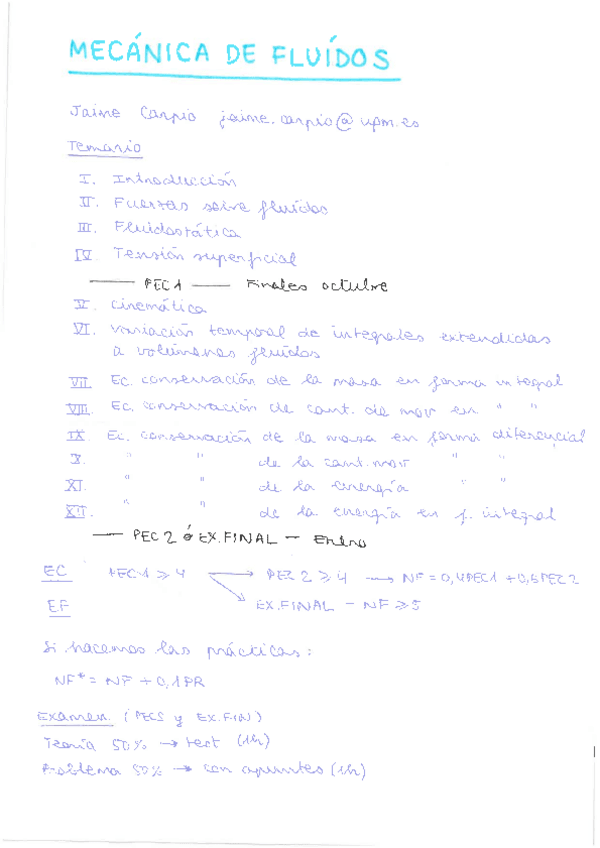 MECÁNICA DE FLUÍDOS
Jaime Carpio jaime.carpio@upm.es
Temario
I. Introducción
II. Fuerzas sobre fluidos
III. Fluidostática
IV. Tensión superficial
PEC1 — Finales octubre
V. Cinemática
VI. Variación temporal de integrales extendidas
a volúmenes fluidos
VII. Ec. conservación de la masa en forma integral
VIII. Ec. conservación de cant. de mov en " "
IX. Ec. conservación de la masa en forma diferencial
X. " " de la cant. mov " "
XI. " " de la energía " "
XII. " " de la energía en f. integral
— PEC 2 ó EX.FINAL — Enero
EC PEC1 ≥ 4 → PEC 2 ≥ 4 → NF = 0,4PEC1 + 0,6PEC2
EF EX.FINAL - NF ≥ 5
Si hacemos las prácticas:
NF* = NF + 0,1PR
Examen (PECS y EX.FIN)
Teoría 50% → test (1h)
Problema 50% → con apuntes (1h)